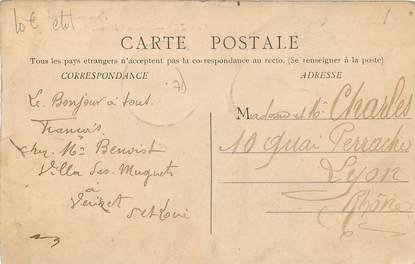 CARTE POSTALE
Tous les pays étrangers n'acceptent pas la correspondance au recto. (Se renseigner à la poste)
CORRESPONDANCE
ADRESSE
Le Bonjour à tout.
François
chez Mr Benoist
Villa des Muguets
à
Madame et Mr Charles
10 Quai Perrache
Lyon
Rhône